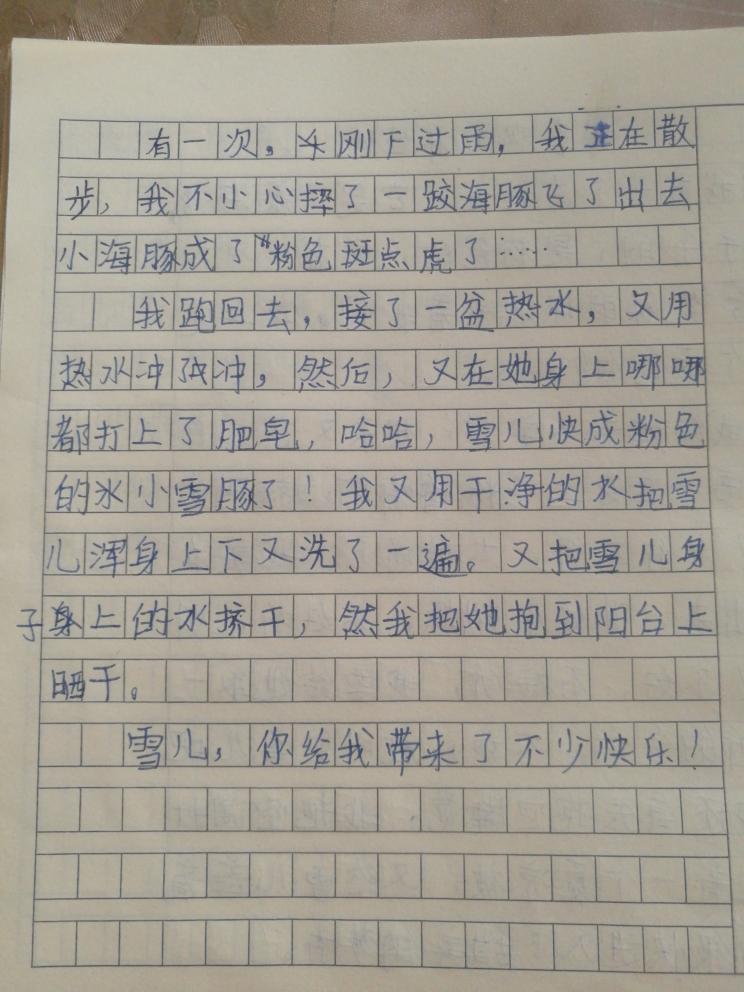 有一次，刚下过雨，我正在散
步，我不小心摔了一跤海豚飞了出去
小海豚成了“粉色斑点虎了……
我跑回去，接了一盆热水，又用
热水冲冲，然后，又在她身上哪哪
都打上了肥皂，哈哈，雪儿快成粉色
的冰小雪豚了！我又用干净的水把雪
儿浑身上下又洗了一遍。又把雪儿身
子身上的水挤干，然我把她抱到阳台上
晒干。
雪儿，你给我带来了不少快乐！